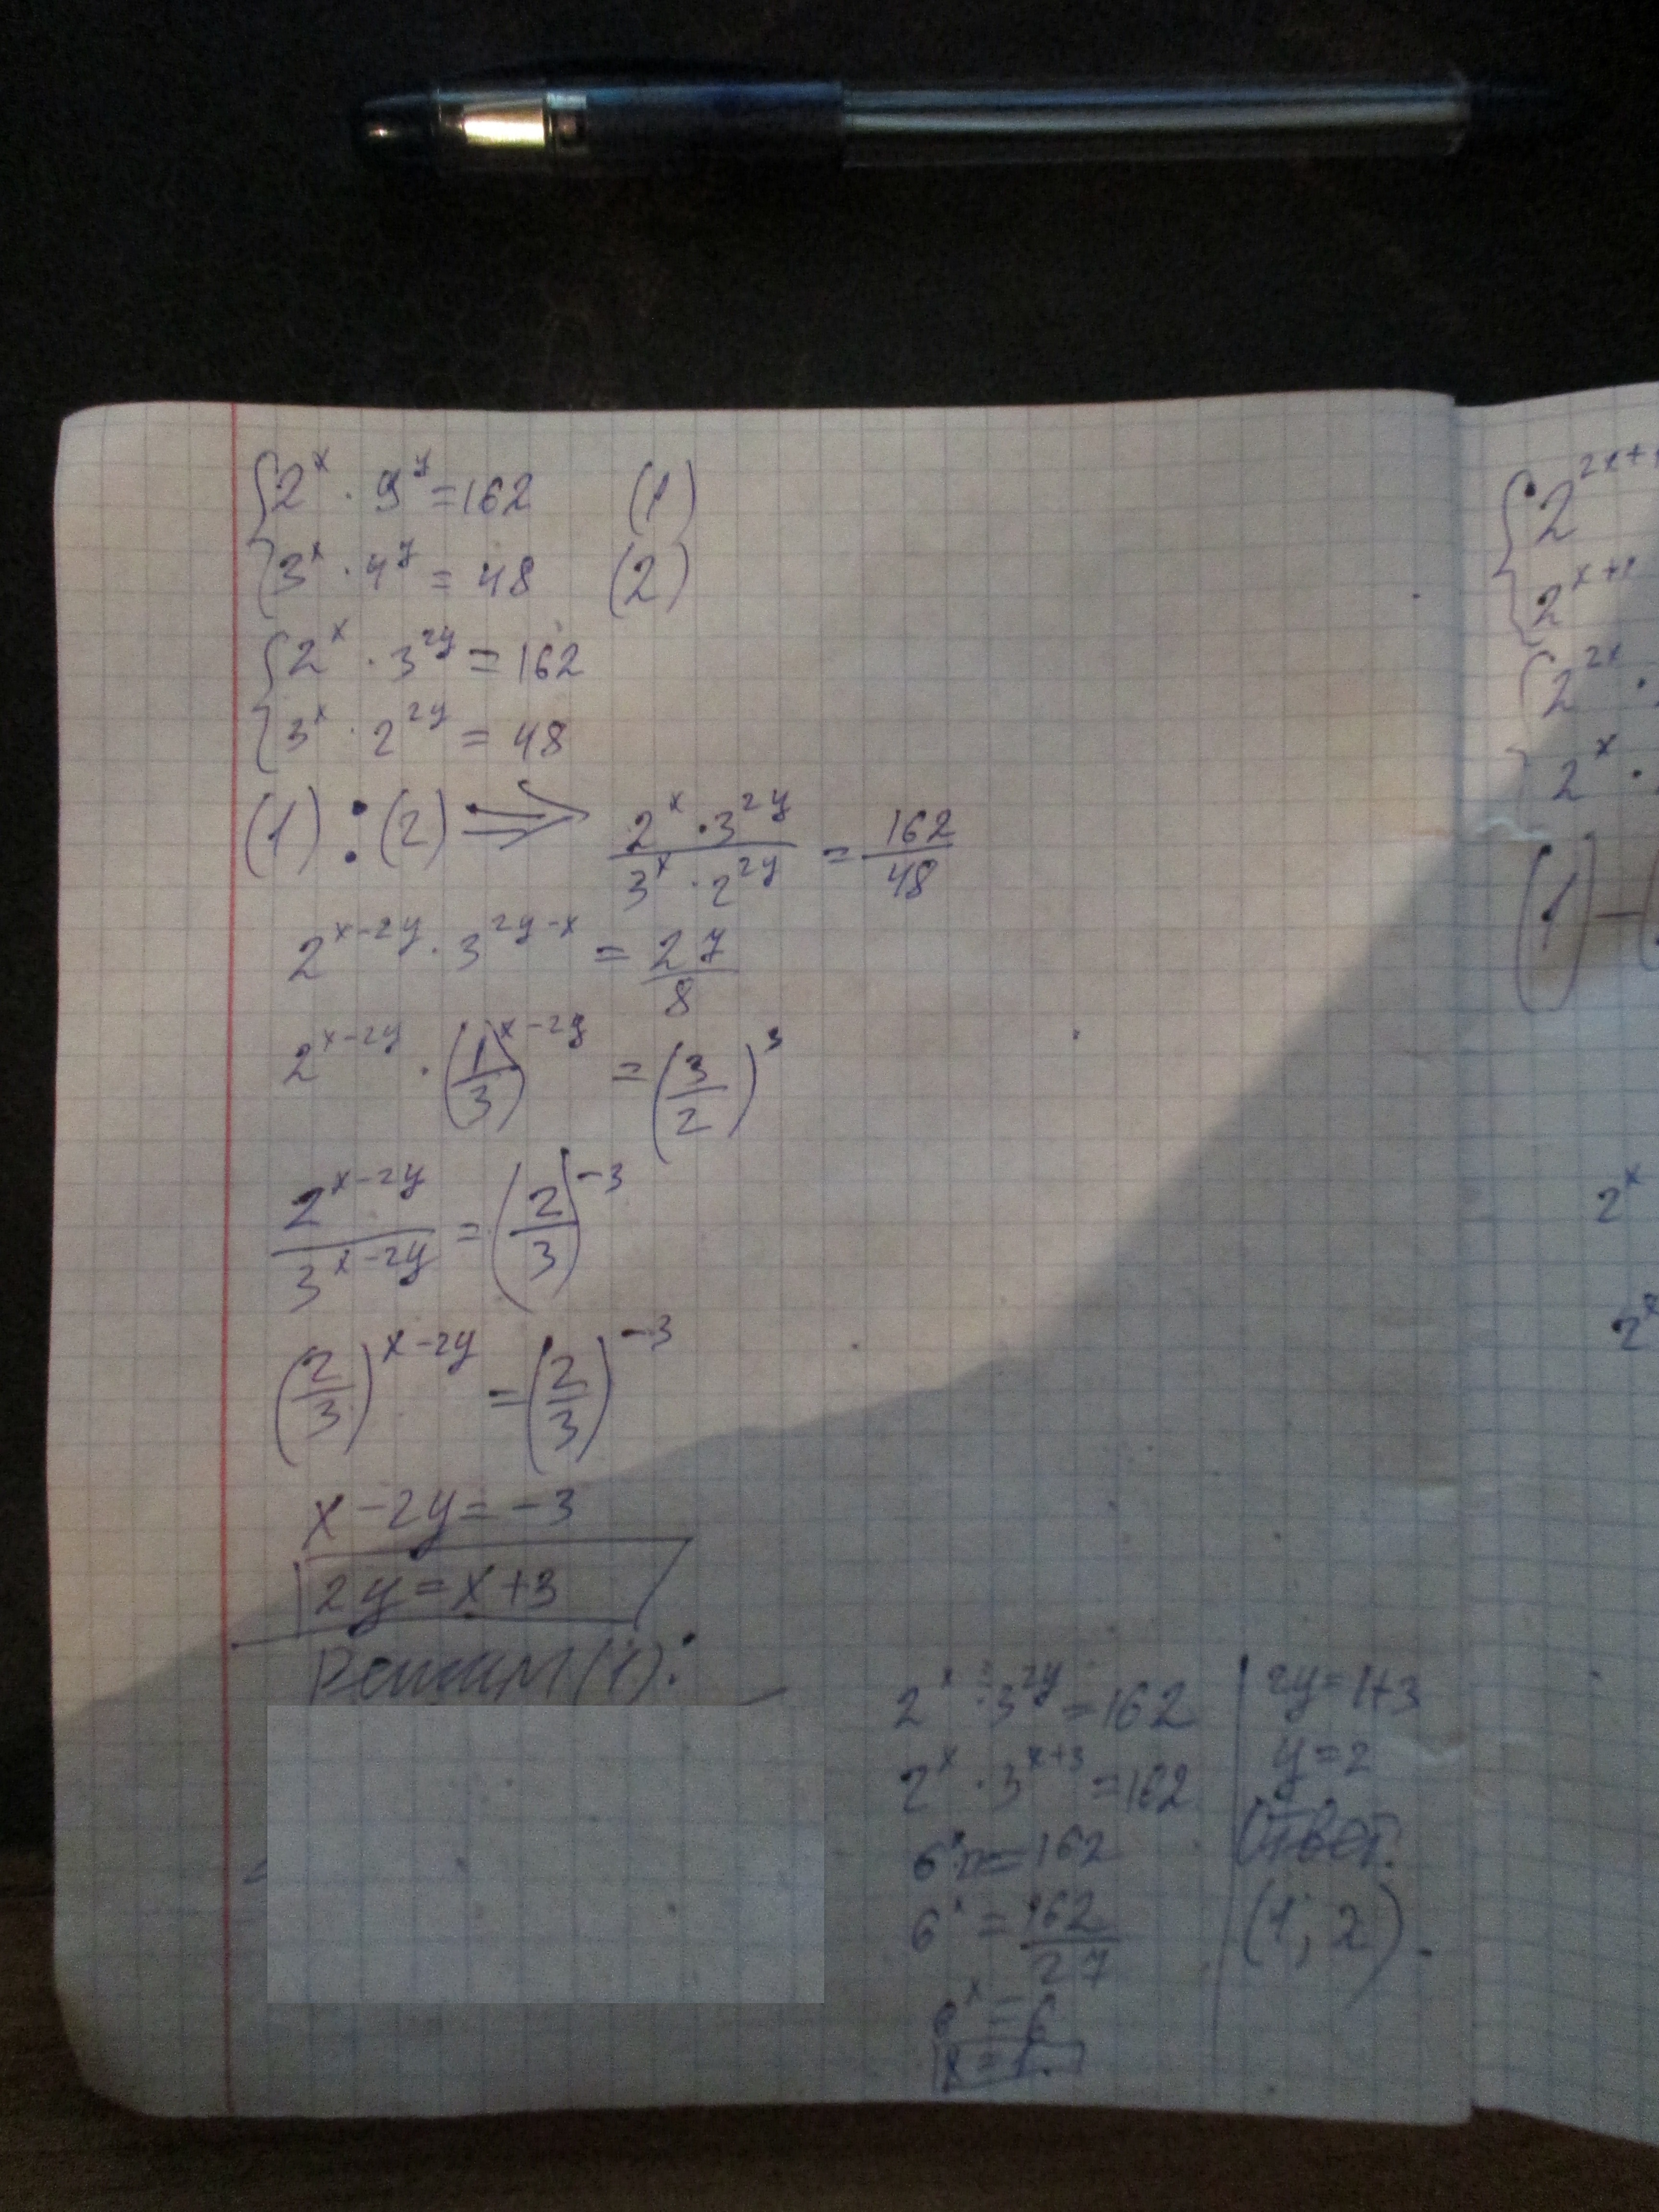 {2^x · 9^y = 162 (1)
{3^x · 4^y = 48 (2)
{2^x · 3^{2y} = 162
{3^x · 2^{2y} = 48
(1) : (2) ⇒ \frac{2^x · 3^{2y}}{3^x · 2^{2y}} = \frac{162}{48}
2^{x-2y} · 3^{2y-x} = \frac{27}{8}
2^{x-2y} · (\frac{1}{3})^{x-2y} = (\frac{3}{2})^3
\frac{2^{x-2y}}{3^{x-2y}} = (\frac{2}{3})^{-3}
(\frac{2}{3})^{x-2y} = (\frac{2}{3})^{-3}
x - 2y = -3
2y = x + 3
Решим (1):
2^x · 3^{2y} = 162
2^x · 3^{x+3} = 162
6^x · 27 = 162
6^x = \frac{162}{27}
6^x = 6
x = 1.
2y = 1+3
y = 2
Ответ:
(1; 2).
{2^{2x+
2^{x+
{2^{2x} ·
2^x ·
(1) - (
2^x
2^x